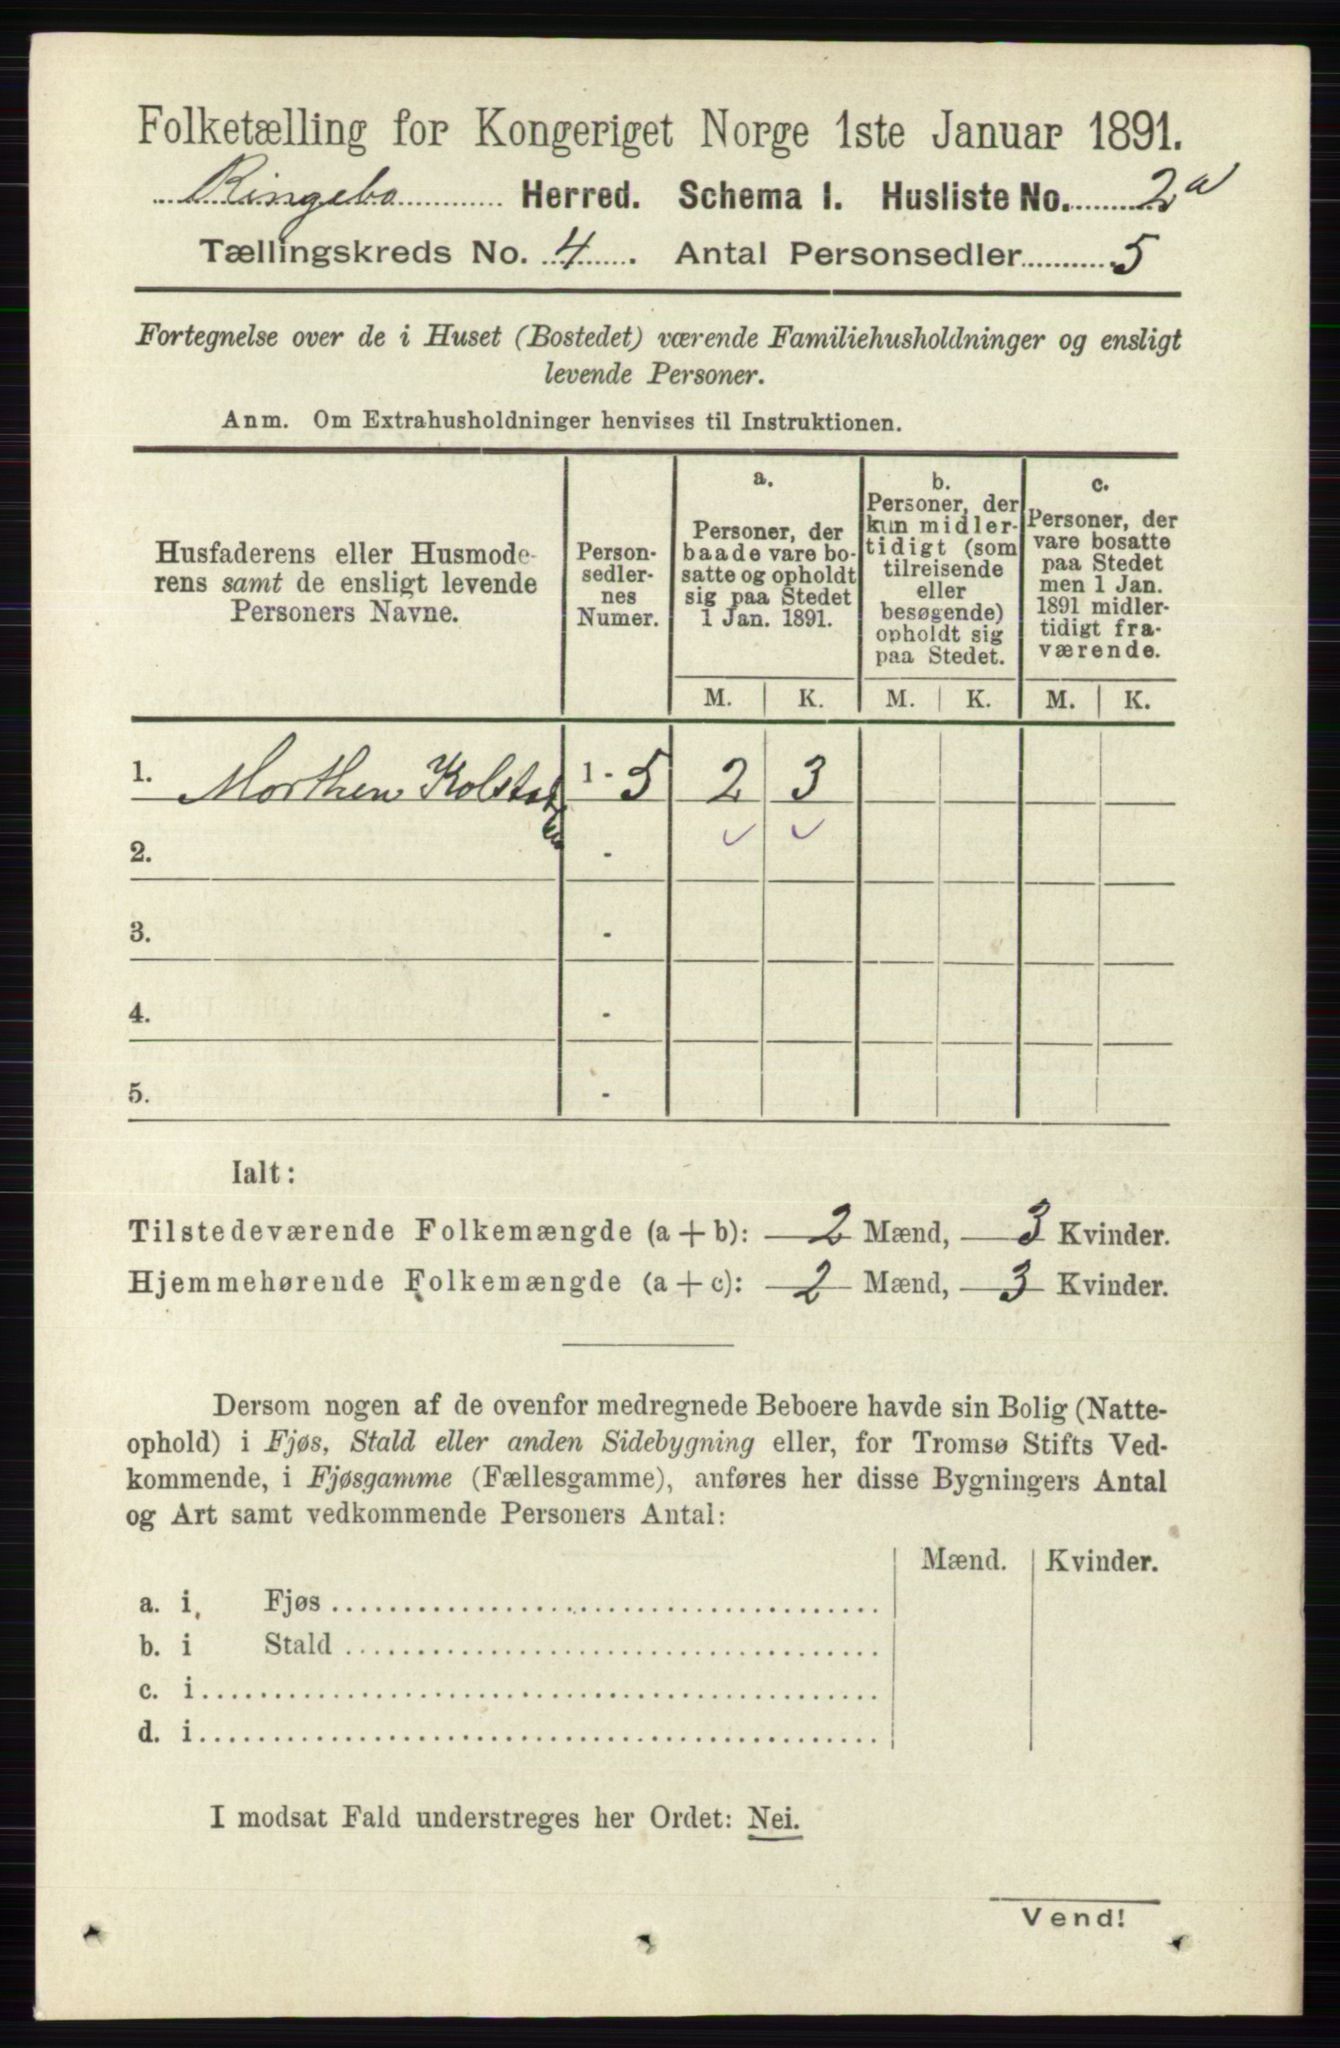 Folketælling for Kongeriget Norge 1ste Januar 1891.
Ringebo Herred. Schema I. Husliste No. 2a
Tællingskreds No. 4. Antal Personsedler 5
Fortegnelse over de i Huset (Bostedet) værende Familiehusholdninger og ensligt
levende Personer.
Anm. Om Extrahusholdninger henvises til Instruktionen.
Husfaderens eller Husmode-
rens samt de ensligt levende
Personers Navne.
Person-
sedler-
nes
Numer.
a.
Personer, der
baade vare bo-
satte og opholdt
sig paa Stedet
1 Jan. 1891.
b.
Personer, der
kun midler-
tidigt (som
tilreisende
eller
besøgende)
opholdt sig
paa Stedet.
c.
Personer, der
vare bosatte
paa Stedet
men 1 Jan.
1891 midler-
tidigt fra-
værende.
M. K. M. K. M. K.
1. Morthen 1 - 5 2 3
2. -
3. -
4. -
5. -
Ialt:
Tilstedeværende Folkemængde (a + b): 2 Mænd, 3 Kvinder.
Hjemmehørende Folkemængde (a + c): 2 Mænd, 3 Kvinder.
Dersom nogen af de ovenfor medregnede Beboere havde sin Bolig (Natte-
ophold) i Fjøs, Stald eller anden Sidebygning eller, for Tromsø Stifts Ved-
kommende, i Fjøsgamme (Fællesgamme), anføres her disse Bygningers Antal
og Art samt vedkommende Personers Antal:
Mænd. Kvinder.
a. i Fjøs
b. i Stald
c. i
d. i
I modsat Fald understreges her Ordet: Nei.
Vend!